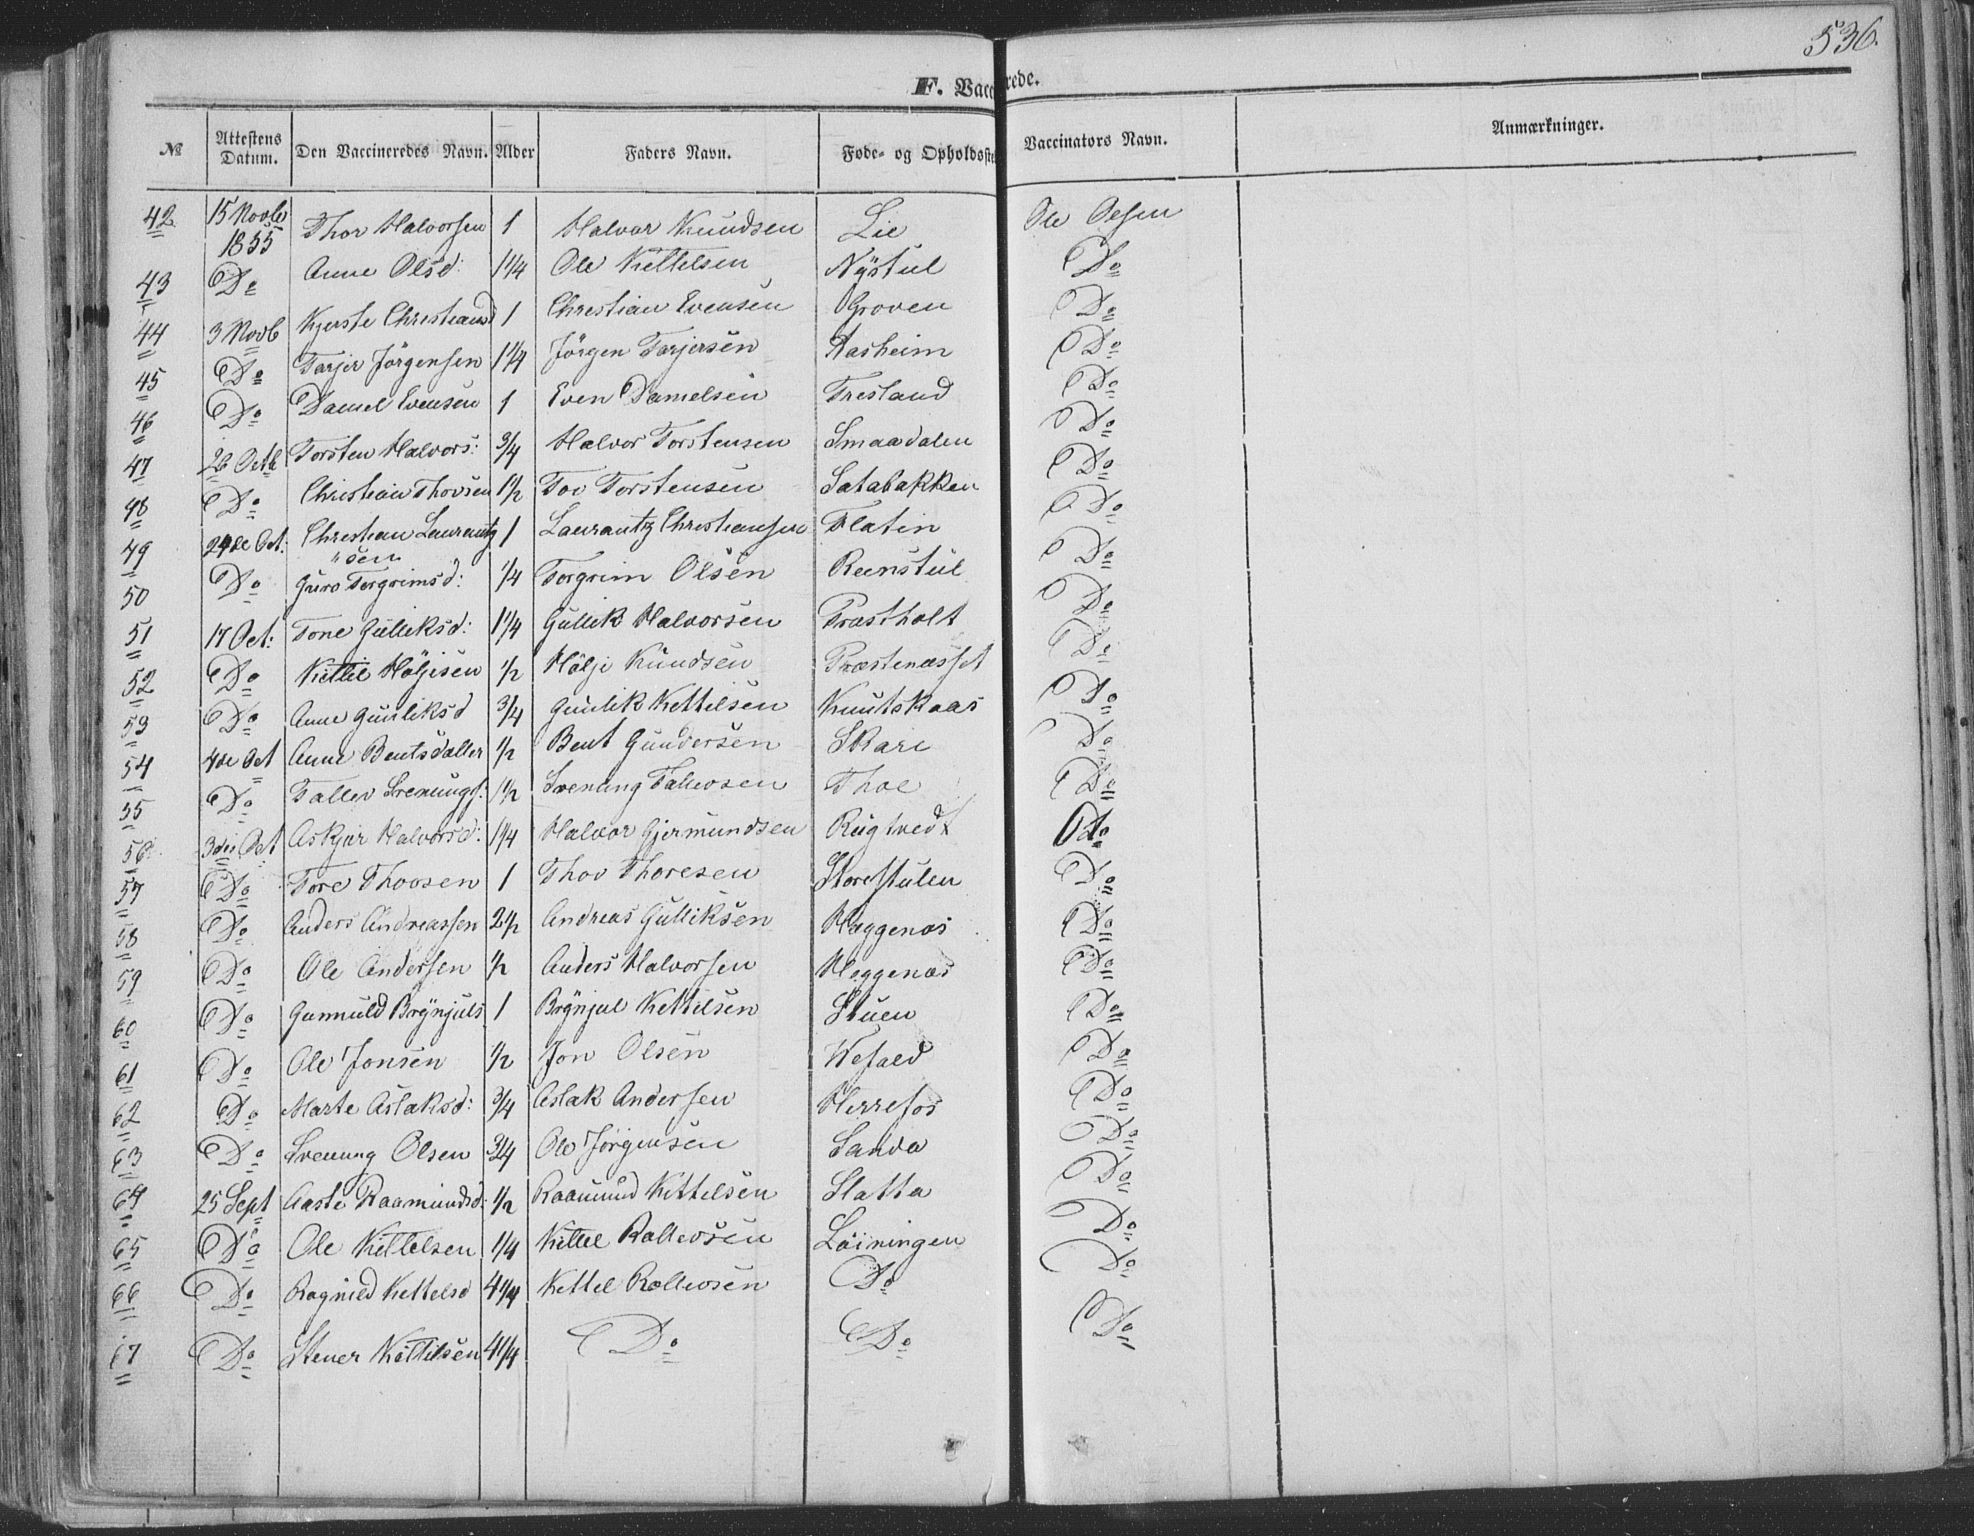 536.
F. Vaccinerede.
№ Attestens Datum. Den Vaccineredes Navn. Alder Faders Navn. Føde- og Opholdsste Vaccinators Navn. Anmærkninger.
42 15 Novbr 1855 Thor Halvorsen 1 Halvor Knudsen Lie Ole Olsen
43 Do Anne Olsd: 1 1/4 Ole Kittelsen Nÿstul Do
44 3 Novb Kjerste Christiansd 1 Christian Evensen Groven Do
45 Do Tarjer Jörgensen 1 1/4 Jörgen Tarjersen Aasheim Do
46 Do Daniel Evensen 1 Even Danielsen Tresland Do
47 26 Octb Torsten Halvors: 3/4 Halvor Torstensen Smaadalen Do
48 Do Christian Thovsen 1 1/2 Tov Torstensen Satabakken Do
49 24de Oct: Christian Laurantz 1 Laurantz Christiansen Flatin Do
"sen
50 Do Guro Torgrimsd: 1/4 Torgrim Olsen Reenstul Do
51 17 Oct: Tone Gulliksd: 1 1/4 Gullik Halvorsen Træstholt Do
52 Do Kittil Höljesen 1/2 Hölje Knudsen Præstenæsset Do
53 Do Anne Gunliksd 3/4 Gunlik Kettilsen Knutskaas Do
54 4de Oct Anne Bentsdatter 1/2 Bent Gundersen Skare Do
55 Do Tallev Svenungs: 1 1/2 Svenung Tallevsen Thoe Do
56 3die Oct Askjær Halvorsd: 1 1/4 Halvor Gjermundsen Rugtvedt Do
57 Do Tore Thovsen 1 Thov Thoresen Storestulen Do
58 Do Anders Andreassen 2 1/2 Andreas Gulliksen Heggenæs Do
59 Do Ole Andersen 1/2 Anders Halvorsen Heggenæs Do
60 Do Gunnuld Brÿnjuls 1 Brÿnjul Kettilsen Stuen Do
61 Do Ole Jonsen 1/2 Jon Olsen Wefald Do
62 Do Marte Aslaksd: 3/4 Aslak Andersen Herrefos Do
63 Do Svenung Olsen 3/4 Ole Jörgensen Sanda Do
64 25 Sept Aaste Raamundsd: 1/2 Raamund Kittelsen Slatta Do
65 Do Ole Kittelsen 1/4 Kittel Rollevsen Löiningen Do
66 Do Ragnild Kettelsd 4 1/4 Kettel Rollevsen Do Do
67 Do Stener Kettilsen 4 1/4 Do Do Do